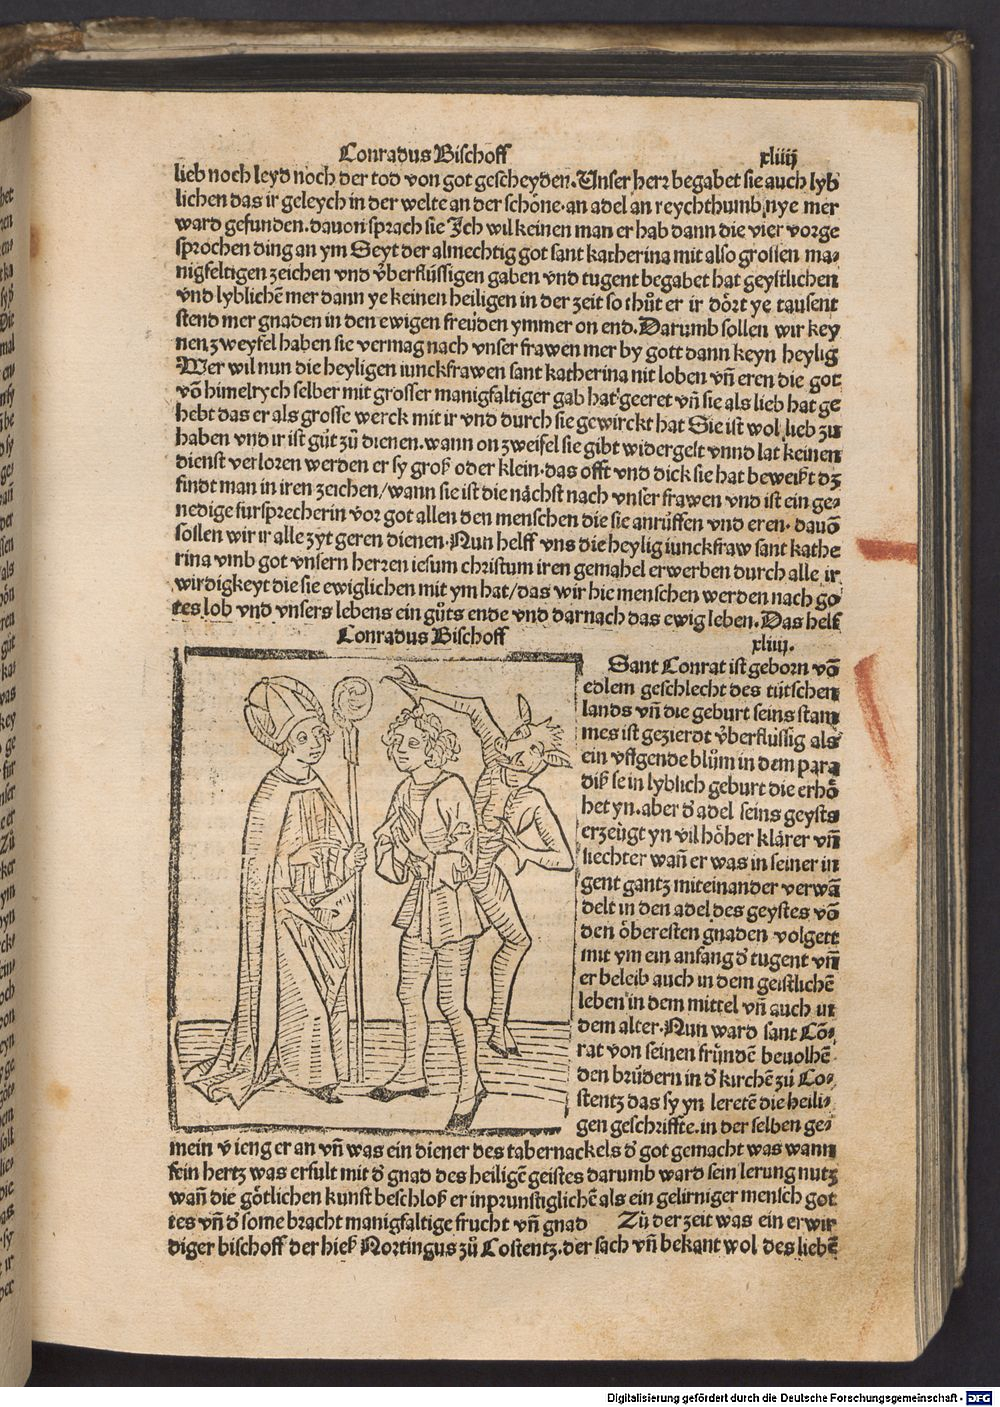 Conradus Bischoff xliiij
lieb noch leyd noch der tod von got gescheyden. Unser herꝛ begabet sie auch lyb
lichen das ir geleych in der welte an der schöne. an adel an reychthumb nye mer
ward gefunden. dauon sprach sie Ich wil keinen man er hab dann die vier vorge
sprochen ding an ym Seyt der almechtig got sant katherina mit also grossen ma-
nigfeltigen zeichen vnd vͤberflüssigen gaben vnd tugent begabet hat geystlichen
vnd lyblichē mer dann ye keinen heiligen in der zeit so thůt er ir dört ye tausent
stend mer gnaden in den ewigen freüden ymmer on end. Darumb sollen wir key
nen zweyfel haben sie vermag nach vnser frawen mer by gott dann keyn heylig
Wer wil nun die heyligen iunckfrawen sant katherina nit loben vn̄ eren die got
vō himelrych selber mit grosser manigfaltiger gab hat geeret vn̄ sie als lieb hat ge
hebt das er als grosse werck mit ir vnd durch sie gewirckt hat Sie ist wol lieb zu
haben vnd ir ist gůt zů dienen. wann on zweifel sie gibt widergelt vnnd lat keinen
dienst verloren werden er sy groß oder klein. das offt vnd dick sie hat beweißt dꝫ
findt man in iren zeichen/wann sie ist die nächst nach vnser frawen vnd ist ein ge-
nedige fursprecherin vor got allen den menschen die sie anrůffen vnd eren. dauō
sollen wir ir alle zyt geren dienen. Nun helff vns die heylig iunckfraw sant kathe
rina vmb got vnsern herren iesum christum iren gemahel erwerben durch alle ir
wirdigkeyt die sie ewiglichen mit ym hat/das wir hie menschen werden nach go
tes lob vnd vnsers lebens ein gůts ende vnd darnach das ewig leben. Das helf
Conradus Bischoff xliiij.
Sant Conrat ist geborn vō
edlem geschlecht des tütschen
lands vn̄ die geburt seins stam
mes ist gezierdt vͤberflüssig als
ein vffgende blům in dem para
diß sein lyblich geburt die erhö
het yn. aber d̄ adel seins geysts
erzeügt yn vil höher klärer vn̄
liechter wan̄ er was in seiner iu
gent gantz miteinander verwā
delt in den adel des geystes vō
den öberesten gnaden volgett
mit ym ein anfang d̄ tugent vn̄
er beleib auch in dem geistlichē
leben in dem mittel vn̄ auch in
dem alter. Nun ward sant Cō-
rat von seinen fründē beuolhē
den brüdern in d̄ kirchē zů Co-
stentz das sy yn leretē die heili-
gen geschriffte. in der selben ge-
mein vieng er an vn̄ was ein diener des tabernackels d̄ got gemacht was wann
sein hertz was erfült mit d̄ gnad des heiligē geistes darumb ward sein lerung nutz
wan̄ die götlichen kunst beschloß er inprunstiglichē als ein gelirniger mensch got
tes vn̄ d̄ some bracht manigfaltige frucht vn̄ gnad Zů der zeit was ein erwir
diger bischoff der hieß Nortingus zů Costentz. der sach vn̄ bekant wol des liebē
Digitalisierung gefördert durch die Deutsche Forschungsgemeinschaft - DFG